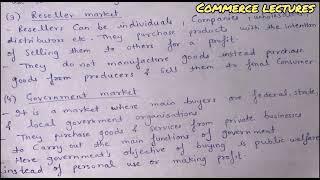 COMMERCE LECTURES
(3) Reseller market
- Resellers can be individuals, Companies, wholesalers,
distributors etc. They purchase products with the intention
of Selling them to others for a profit.
- They do not manufacture goods instead purchase
goods from producers & sell them to final Consumer
(4) Government market
- It is a market where main buyers are federal, state,
& local government organisations
- They purchase goods & services from private businesses
to Carry out the main functions of government
- Here government's objective of buying is public welfare
instead of personal use or making profit.